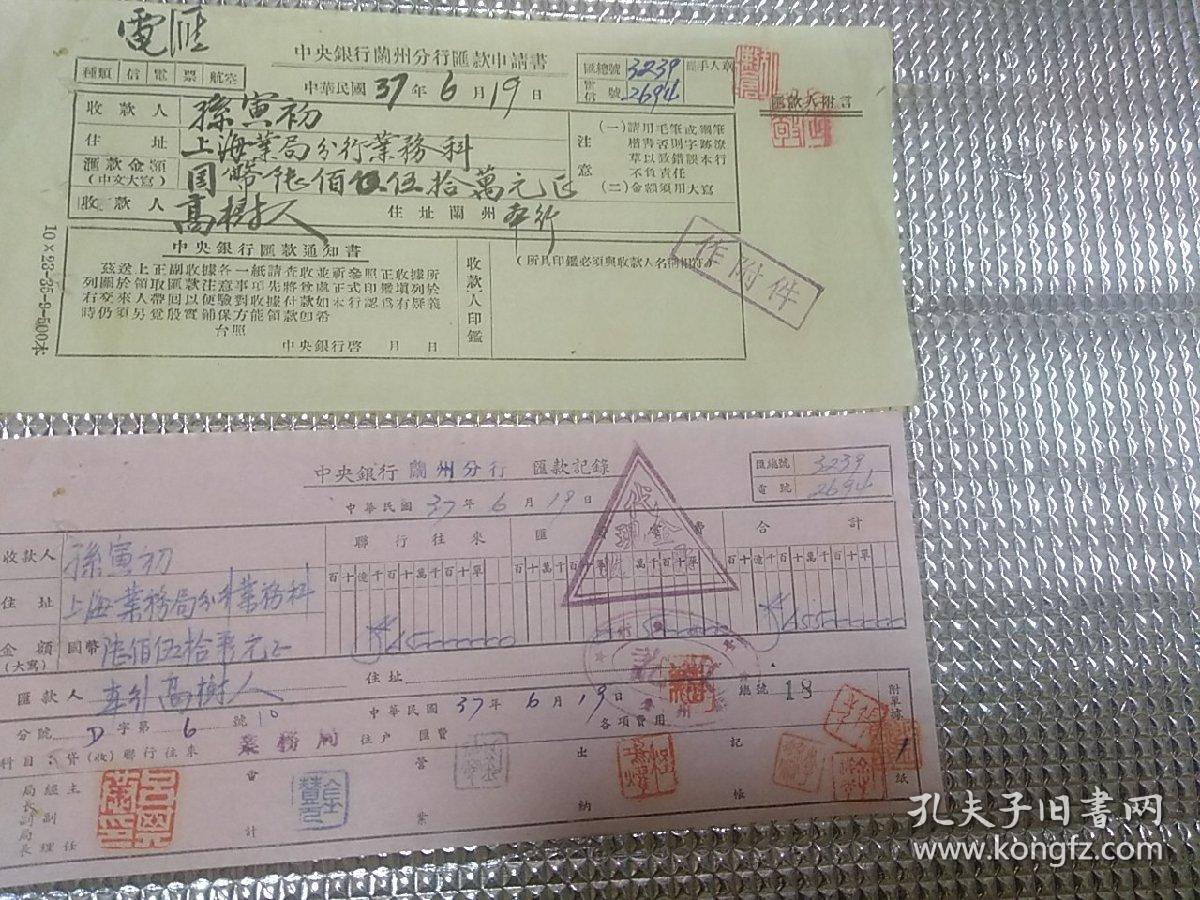 電匯
中央銀行蘭州分行匯款申請書
種類 信 電 票 航空
中華民國 37 年 6 月 19 日
匯總號 3239
電信號 2694
匯款人附言
收款人 孫寅初
住址 上海業局分行業務科
匯款金額
(中文大寫) 国幣陸佰伍拾萬元正
收款人 高樹人 住址 蘭州 本行
注意
(一)請用毛筆或鋼筆
楷書否則字跡潦
草以致錯誤本行
不負責任
(二)金額須用大寫
作附件
中央銀行匯款通知書
茲送上正副收據各一紙請查收並希參照正收據所
列關於領取匯款注意事項先將營處正式印鑑填列於
右交來人帶回以便驗對收據付款如本行認為有疑義
時仍須另覓殷實鋪保方能領款即希
台照
中央銀行啓 月 日
收款人印鑑
(所具印鑑必須與收款人名稱相符)
10×23-35-9-500本
中央銀行 蘭州分行 匯款記錄
中華民國 37 年 6 月 19 日
匯總號 3239
電號 2694
收款人 孫寅初
住址 上海業務局分行業務科
金額
(大寫) 國幣 陸佰伍拾萬元正
聯行往來
匯
費
合計
百十億千百十萬千百十單
代現金
匯款人 本行高樹人
住址
分號 D 字第 6 號 10
中華民國 37 年 6 月 19 日
總號 18
科目:貸(收)聯行往來 業務局 往戶 匯費
各項費用
附單據 1 紙
主任
經副理
局長副局長
會計
營業
出納
記帳
孔夫子旧書网
www.kongfz.com